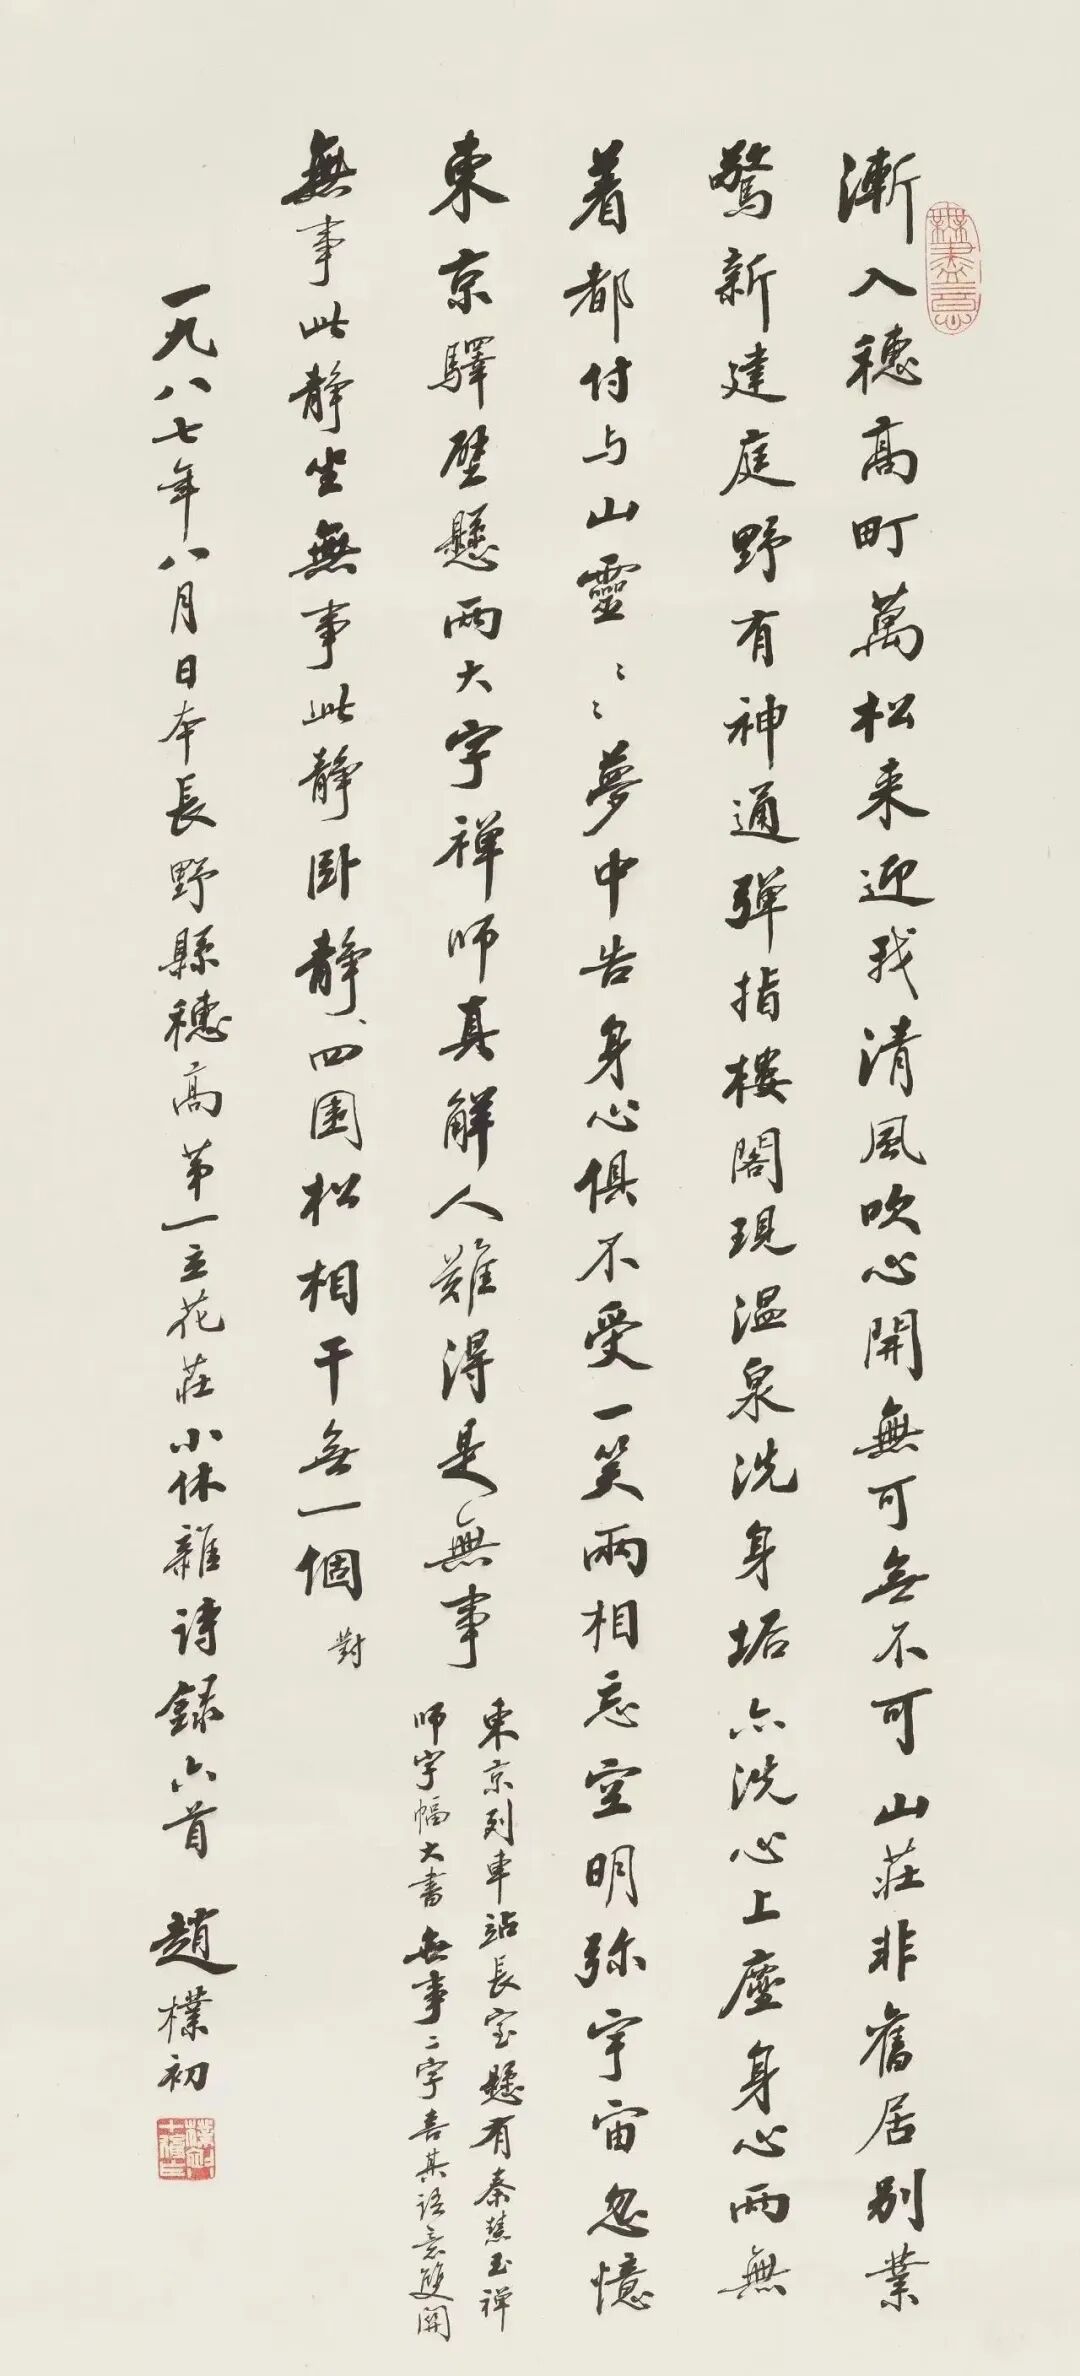 漸入穗高町萬松来迎我清風吹心開無可無不可山莊非舊居別業
驚新建庭野有神通彈指樓閣現温泉洗身垢亦洗心上塵身心兩無
着都付与山靈〻〻夢中告身心俱不受一笑兩相忘空明弥宇宙忽憶
東京驛壁懸兩大字禅師真解人難得是無事
東京列車站長室懸有秦慧玉禅
師字幅大書無事二字喜其語意雙關
無事此静坐無事此静卧静、四圍松相干無一個
對
一九八七年八月日本長野縣穗高第一立花莊小休雜詩録六首
趙樸初
無盡意